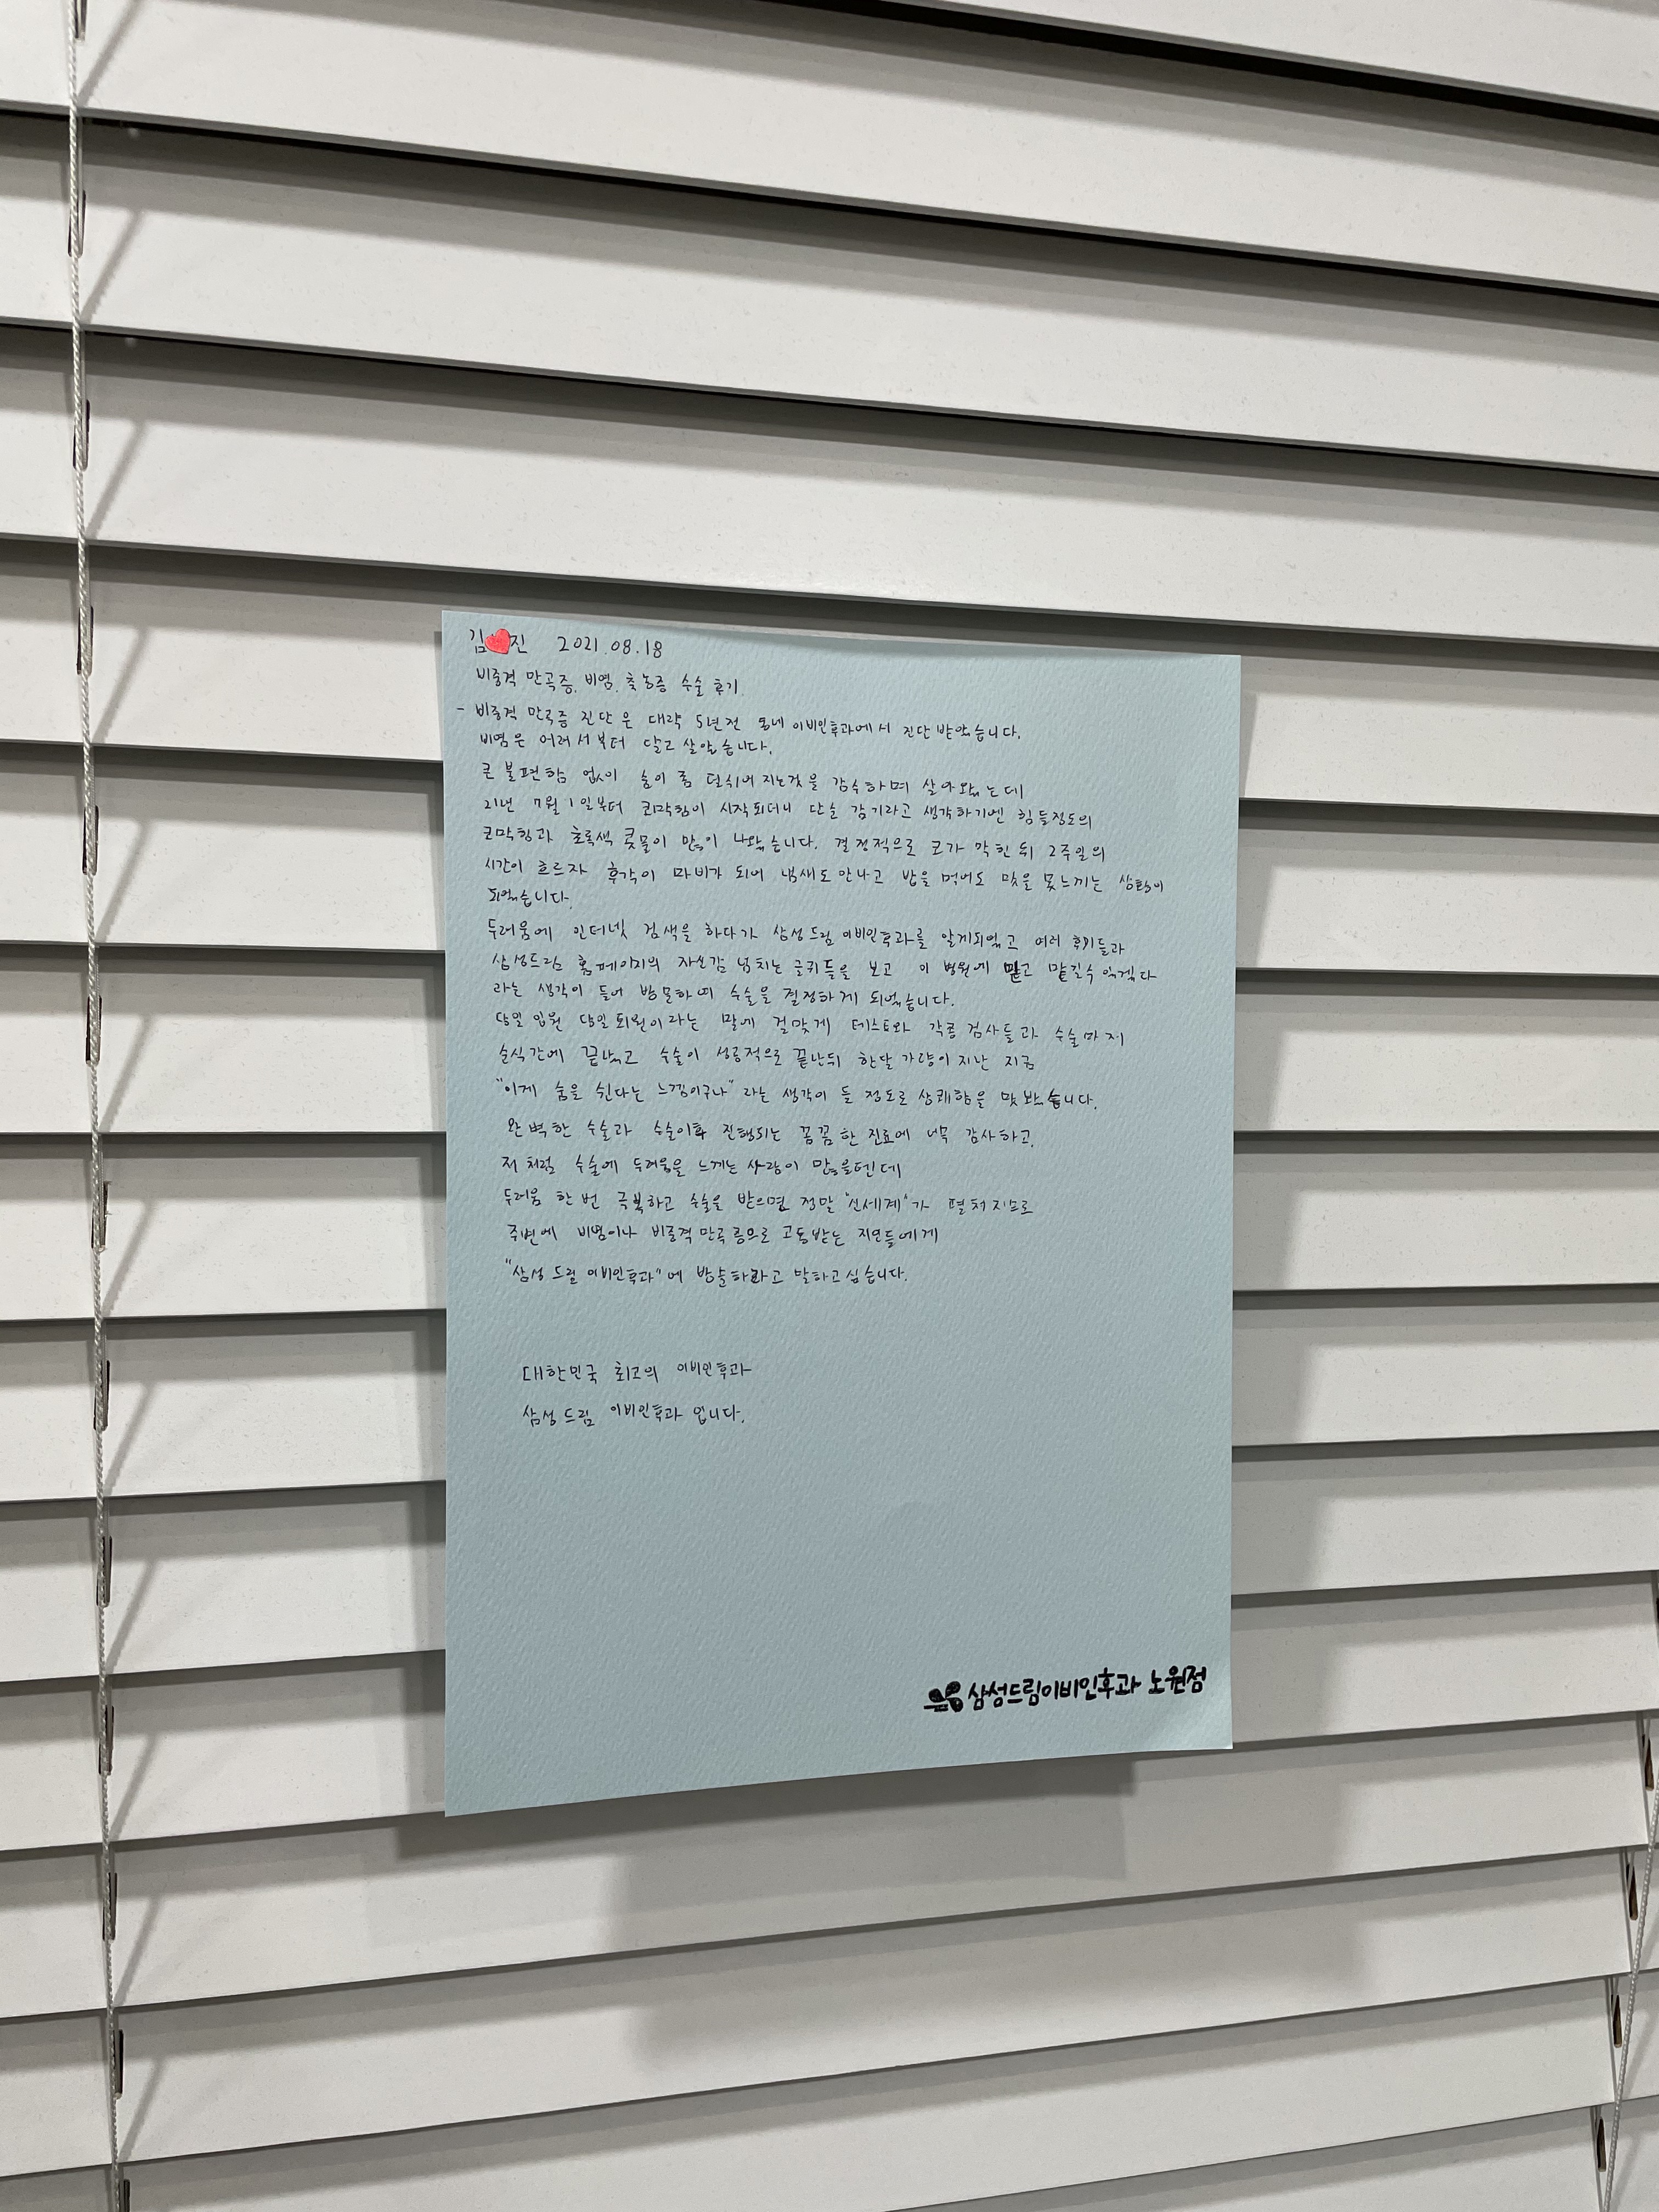 김❤진 2021.08.18
비중격 만곡증, 비염, 축농증 수술 후기.
- 비중격 만곡증 진단은 대략 5년전 동네 이비인후과에서 진단받았습니다.
비염은 어려서부터 달고 살았습니다.
큰 불편함 없이 숨이 좀 덜쉬어지는것을 감수하며 살아왔는데
21년 7월 1일부터 코막힘이 시작되더니 단순 감기라고 생각하기엔 힘들정도의
코막힘과 초록색 콧물이 많이 나왔습니다. 결정적으로 코가 막힌 뒤 2주일의
시간이 흐르자 후각이 마비가 되어 냄새도 안나고 밥을 먹어도 맛을 못느끼는 상황이
되었습니다.
두려움에 인터넷 검색을 하다가 삼성드림 이비인후과를 알게되었고 여러 후기들과
삼성드림 홈페이지의 자신감 넘치는 글귀들을 보고 이 병원에 믿고 맡길수 있겠다
라는 생각이 들어 방문하여 수술을 결정하게 되었습니다.
당일 입원 당일 퇴원이라는 말에 걸맞게 테스트와 각종 검사들과 수술마저
순식간에 끝났고 수술이 성공적으로 끝난뒤 한달 가량이 지난 지금
"이게 숨을 쉰다는 느낌이구나" 라는 생각이 들 정도로 상쾌함을 맛봤습니다.
완벽한 수술과 수술이후 진행되는 꼼꼼한 진료에 너무 감사하고,
저 처럼 수술에 두려움을 느끼는 사람이 많을텐데
두려움 한번 극복하고 수술을 받으면 정말 "신세계"가 펼쳐지므로
주변에 비염이나 비중격만곡증으로 고통받는 지인들에게
"삼성드림 이비인후과"에 방문하라고 말하고싶습니다.
대한민국 최고의 이비인후과
삼성드림 이비인후과 입니다.
삼성드림이비인후과 노원점